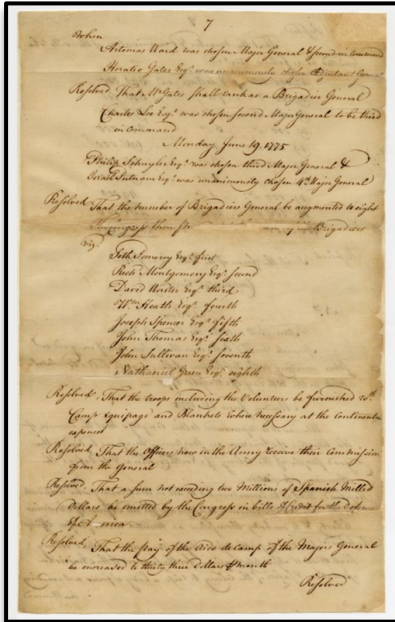 7
When
Artemas Ward was chosen Major General & second in Command
Horatio Gates Esqr. was unanimously chosen Adjutant
Resolved, That Mr Gates shall rank as a Brigadier General
Charles Lee Esqr. was chosen second Major General to be third
in command
Monday June 19. 1775
Philip Schuyler Esqr. was chosen third Major General &
Israel Putnam Esqr. was unanimously chosen 4th Major General
Resolved That the number of Brigadiers General be augmented to eight
Brigadiers
Viz
Seth Pomroy Esqr. first
Richd Montgomery Esqr. second
David Worster Esqr. third
Wm Heath Esqr. fourth
Joseph Spencer Esqr. fifth
John Thomas Esqr. sixth
John Sullivan Esqr. seventh
Nathaniel Green Esqr. eighth
Resolved, That the troops including the Volunteers be furnished with
Camp Equipage and Blankets where necessary at the Continental
expence
Resolved, That the Officers now in the Army receive their Commission
from the General
Resolved, That a sum not exceeding two Millions of Spanish Milled
dollars be emitted by the Congress in bills of Credit for the defence
of A merica
Resolved, That the pay of the Aids de Camp of the Majors General
be increased to thirty three dollars month
Resolved